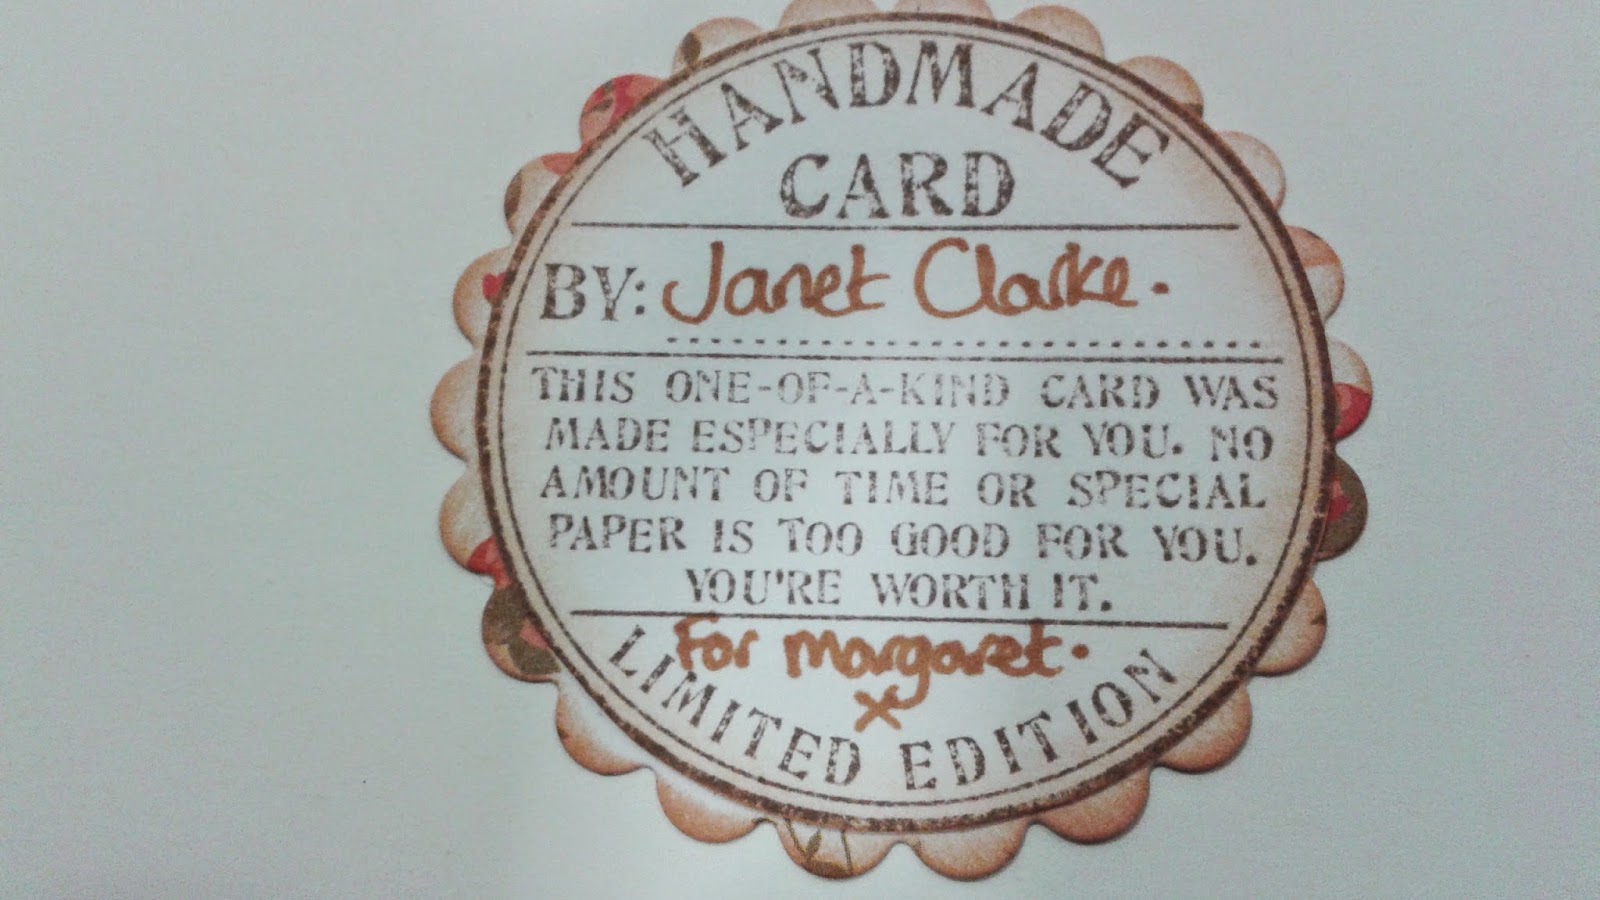 HANDMADE
CARD
BY: Janet Clarke.
THIS ONE-OF-A-KIND CARD WAS
MADE ESPECIALLY FOR YOU. NO
AMOUNT OF TIME OR SPECIAL
PAPER IS TOO GOOD FOR YOU.
YOU'RE WORTH IT.
For margaret.
x
LIMITED EDITION